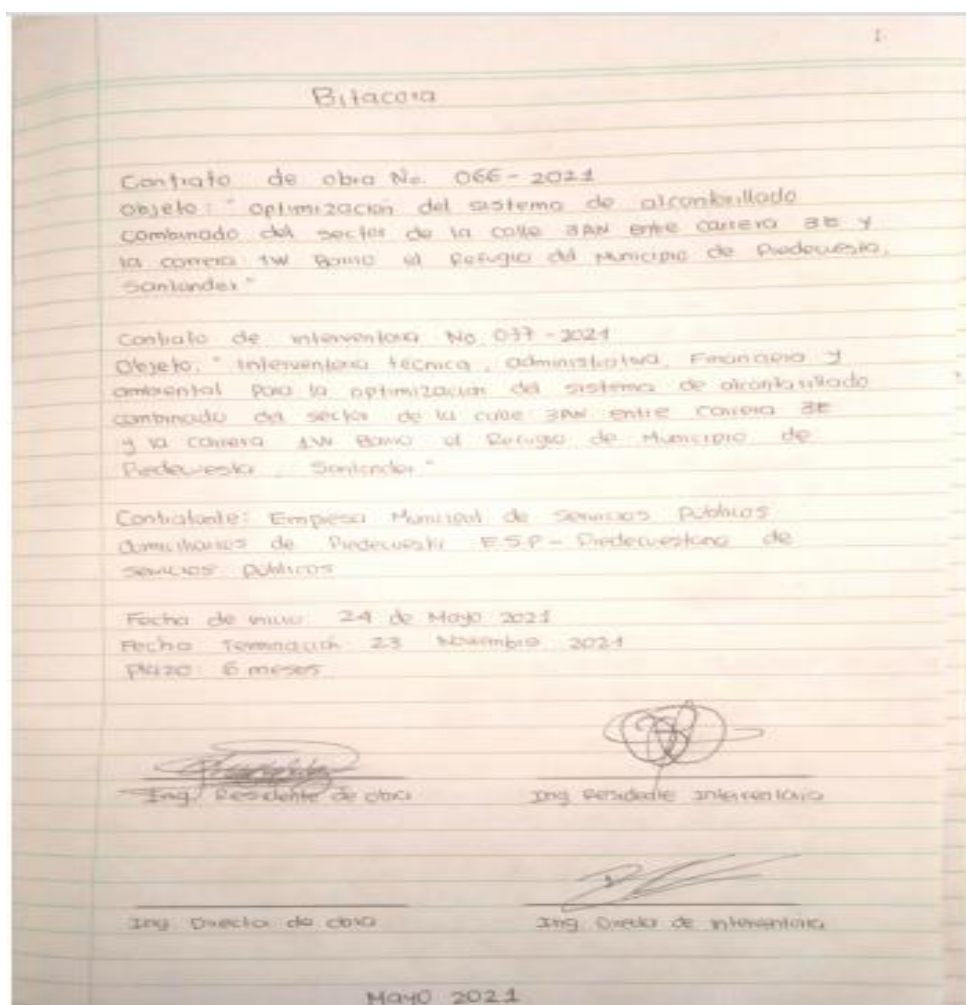 1
Bitacora
Contrato de obra No. 066-2021
Objeto: " Optimizacion del sistema de alcantarillado
combinado del sector de la calle 3AN entre carrera 3E y
la carrera 1W Barrio el Refugio del Municipio de Piedecuesta,
Santander"
Contrato de interventoria No. 037-2021
Objeto: " Interventoria técnica, administrativa, Financiera y
ambiental para la optimización del sistema de alcantarillado
combinado del sector de la calle 3AN entre carrera 3E
y la carrera 1W Barrio el Refugio de Municipio de
Piedecuesta, Santander"
Contratante: Empresa Municipal de Servicios Públicos
domiciliarios de Piedecuesta E.S.P - Piedecuestana de
servicios públicos
Fecha de inicio: 24 de Mayo 2021
Fecha Terminación: 23 Noviembre 2021
Plazo: 6 meses
Ing. Residente de obra Ing Residente Interventoria
Ing. Director de obra Ing. Director de interventoria
MAYO 2021